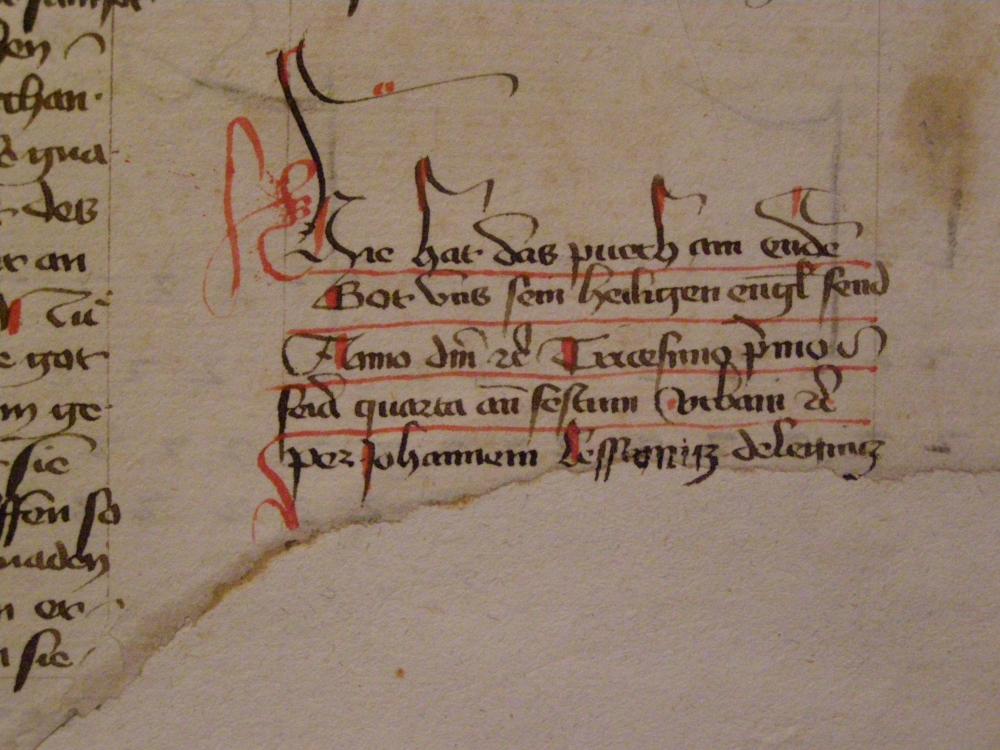 sanct
en
than·
gna
des
er an
Tu
e got
m ge·
sie
ffen so
naden
n er
sie
Hie hat das puech am ende
Got vns sein heiligen engl send
Anno dm̄ ꝛc Tricesimo p̄mo
feria quarta an̄ festum Vrbani ꝛc
per Johannem de legnicz